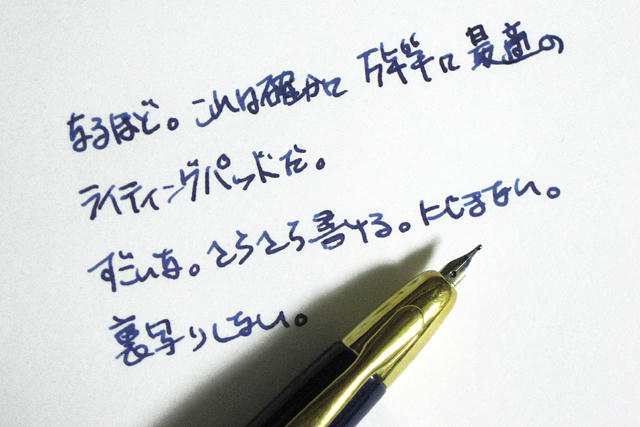 なるほど。これは確かに 万年筆に最適の
ライティングパッドだ。
すごいな。さらさら書ける。にじまない。
裏写りしない。